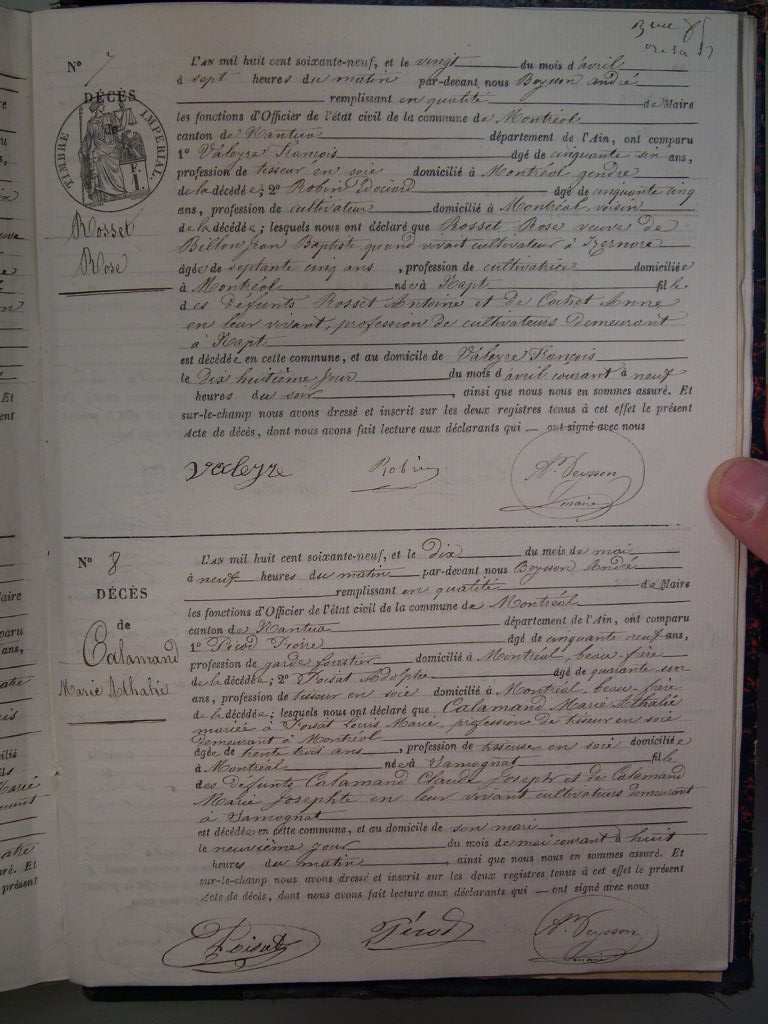 Nº 7
DÉCÈS
de
TIMBRE IMPÉRIAL
F.
1
Rosset
Rose
L'AN mil huit cent soixante-neuf, et le vingt du mois d'avril
à sept heures du matin par-devant nous Boysson André
remplissant en qualité de Maire
les fonctions d'Officier de l'état civil de la commune de Montréal
canton de Nantua département de l'Ain, ont comparu
1º Valeyre François âgé de cinquante six ans,
profession de tisseur en soie domicilié à Montréal gendre
de la décédée; 2º Robin Edouard âgé de cinquante cinq
ans, profession de cultivateur domicilié à Montréal voisin
de la décédée; lesquels nous ont déclaré que Rosset Rose veuve de
Billon Jean Baptiste quand vivait cultivateur à Izernore
âgée de septante cinq ans, profession de cultivatrice domiciliée
à Montréal née à Napt fille
des défunts Rosset Antoine et de Anne
en leur vivant, profession de cultivateurs demeurant
à Napt
est décédée en cette commune, et au domicile de Valeyre François
le dix huitième jour du mois d'avril courant à neuf
heures du soir, ainsi que nous nous en sommes assuré. Et
sur-le-champ nous avons dressé et inscrit sur les deux registres tenus à cet effet le présent
Acte de décès, dont nous avons fait lecture aux déclarants qui — ont signé avec nous
Valeyre Robin
maire
Nº 8
DÉCÈS
de
Calamand
Marie Athalie
L'AN mil huit cent soixante-neuf, et le dix du mois de mai
à neuf heures du matin par-devant nous Boysson André
remplissant en qualité de Maire
les fonctions d'Officier de l'état civil de la commune de Montréal
canton de Nantua département de l'Ain, ont comparu
1º Picod âgé de cinquante neuf ans,
profession de garde forestier domicilié à Montréal, beau-frère
de la décédée; 2º Foisat Adolphe âgé de quarante un
ans, profession de tisseur en soie domicilié à Montréal beau-frère
de la décédée; lesquels nous ont déclaré que Calamand Marie Athalie
mariée à Foisat Louis Marie, profession de tisseur en soie
demeurant à Montréal
âgée de trente trois ans, profession de tisseuse en soie domiciliée
à Montréal née à Samognat fille
des défunts Calamand Claude Joseph et de Calamand
Marie Josephte en leur vivant cultivateurs demeurant
à Samognat
est décédée en cette commune, et au domicile de son mari
le neuvième jour du mois de mai courant à huit
heures du matin, ainsi que nous nous en sommes assuré. Et
sur-le-champ nous avons dressé et inscrit sur les deux registres tenus à cet effet le présent
Acte de décès, dont nous avons fait lecture aux déclarants qui — ont signé avec nous
Foisat Picod
maire